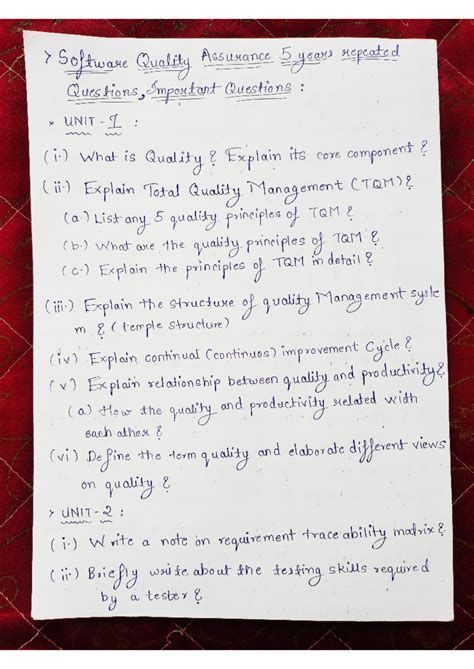 > Software Quality Assurance 5 years repeated
Questions, Important Questions :
* UNIT - 1 :
(i.) What is Quality ? Explain its core component ?
(ii.) Explain Total Quality Management (TQM) ?
(a.) List any 5 quality principles of TQM ?
(b.) What are the quality principles of TQM ?
(c.) Explain the principles of TQM in detail ?
(iii.) Explain the structure of quality Management syste
m ? (temple structure)
(iv) Explain continual (continuos) improvement Cycle ?
(v.) Explain relationship between quality and productivity ?
(a) How the quality and productivity related with
each other ?
(vi) Define the term quality and elaborate different views
on quality ?
> UNIT - 2 :
(i.) Write a note on requirement trace ability matrix ?
(ii.) Briefly write about the testing skills required
by a tester ?